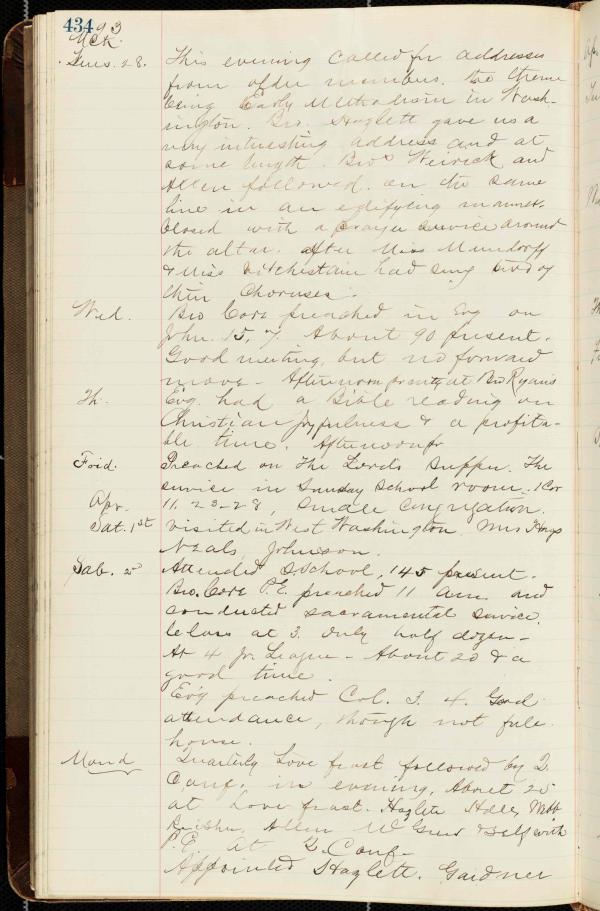 434
93
Mch.
Tues. 28. This evening called for addresses
from older members. the theme
being Early Methodism in Wash-
ington. Bro. Hazlett gave us a
very interesting address and at
some length. Bros Weirick and
Allen followed on the same
line in an edifying manner.
Closed with a prayer service around
the altar. after Miss Mundorff
& Miss had sung two of
their Choruses.
Wed. Bro Core preached in Evg on
John. 15, 7. About 90 present.
Good meeting, but no forward
move - Afternoon at Bro Ryan's
Th. Evg. had a Bible reading on
Christian joyfulness & a profita-
ble time. Afternoon
Frid. Preached on The Lord's Supper. The
service in Sunday School room. 1 Cor
11, 23-28, Small Congregation.
Apr.
Sat. 1st Visited in West Washington. Mrs Hays
Neals, Johnson.
Sab. 2d Attended S. School, 145 present.
Bro. Core P.E. preached 11 am. and
conducted sacramental service.
Class at 3. Only half dozen -
At 4 Jr League - About 20 & a
good time.
Ev'g preached Col. 3. 4. Good
attendance, though not full
house.
Mond Quarterly Love feast followed by Q.
Conf. in evening. About 25
at Love feast. Hazlett
Allen & Self with
P.E. at Q. Conf-
Appointed Hazlett. Gardner